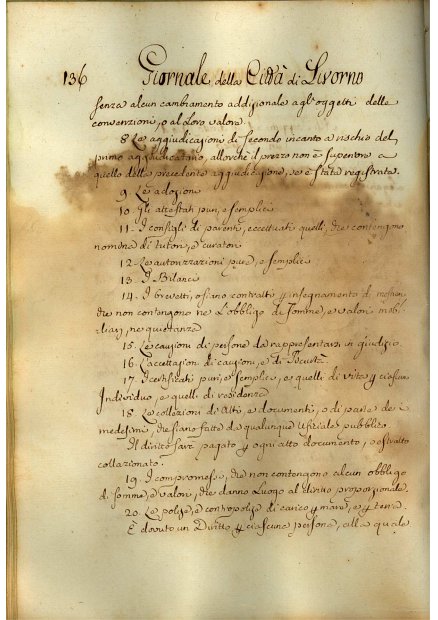 136 Giornale della Città di Livorno
senza alcun cambiamento addizionale agl'oggetti delle
convenzioni, o al Loro valore.
8. Le aggiudicazioni di secondo incanto a rischio del
primo aggiudicatario, allorchè il prezzo non è superiore a
quello della precedente aggiudicazione, se è stata registrata.
9. Le adozioni
10. Gli attestati puri, e semplici
11. I consigli di parenti, eccettuati quelli, che contengono
nomine di tutori, e curatori
12. Le autorizzazioni pure, e semplici
13. I Bilanci
14. I brevetti, o siano contratti p insegnamento di
che non contengono ne L'obbligo di somme, e valori mobi-
liari, ne quietanze
15. Le cauzioni di persone da rappresentarsi in giudizio.
16. L'accettazioni di cauzioni, e di
17. I certificati puri, e semplici, e quelli di vita p ciascun
Individuo, e quelli di residenza
18. Le collazioni di Atti, e documenti, o di parte dei
medesimi, che siano fatte da qualunque Ufiziale pubblico.
Il diritto sarà pagato p ogni atto documento, o estratto
collazionato.
19. I compromessi, che non contengono alcun obbligo
di somme, e valori, che danno Luogo al diritto proporzionale.
20. Le polize, e contropolize di carico p mare, e p terra.
È dovuto un Diritto p ciascuna persona, alla quale